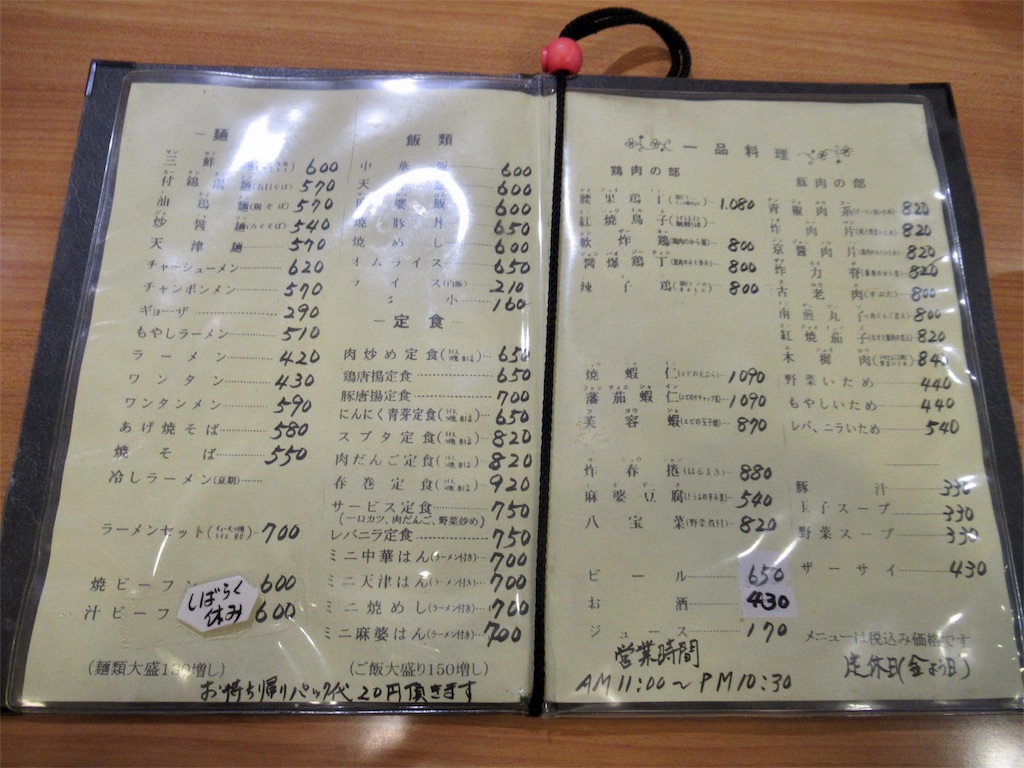 麺
三鮮 600
什錦湯麺(五目そば) 570
油鶏麺(鶏そば) 570
炒醤麺(みそそば) 540
天津麺 570
チャーシューメン 620
チャンポンメン 570
ギョーザ 290
もやしラーメン 510
ラーメン 420
ワンタン 430
ワンタンメン 590
あげ焼そば 580
焼そば 550
冷しラーメン(夏期)
ラーメンセット 700
焼ビーフン 600
汁ビーフ 600
しばらく
休み
(麺類大盛130増し)
飯類
中華飯 600
天 600
婆飯 600
焼豚 650
焼めし 600
オムライス 650
ライス(白飯) 210
小 160
定食
肉炒め定食 650
鶏唐揚定食 650
豚唐揚定食 700
にんにく青芽定食 650
スブタ定食 820
肉だんご定食 820
春巻定食 920
サービス定食 750
(一口カツ、肉だんご、野菜炒め)
レバニラ定食 750
ミニ中華はん(ラーメン付き) 700
ミニ天津はん(ラーメン付き) 700
ミニ焼めし(ラーメン付き) 700
ミニ麻婆はん(ラーメン付き) 700
(ご飯大盛り150増し)
お持ち帰りパック代20円頂きます
一品料理
鶏肉の部
腰果鶏丁 1.080
紅焼鳥子
軟炸鶏(鶏肉のから揚) 800
醤爆鶏丁(鶏肉のみそ炒め) 800
辣子鶏 800
焼蝦仁(えびの天ぷら) 1090
蕃茄蝦仁(えびのケチャップ煮) 1090
芙容蝦(えびの玉子焼) 870
炸春捲(はるまき) 880
麻婆豆腐(とうふの辛み煮) 540
八宝菜(野菜煮付) 820
ビール 650
お酒 430
ジュース 170
営業時間
AM11:00~PM10:30
豚肉の部
青椒肉糸 820
炸肉片 820
京醤肉片 820
炸力脊 820
古老肉(すぶた) 800
南煎丸子(肉だんご煮込) 800
紅焼茄子 820
木樨肉 840
野菜いため 440
もやしいため 440
レバ、ニラいため 540
豚汁 330
玉子スープ 330
野菜スープ 330
ザーサイ 430
メニューは税込み価格です
定休日(金よう日)